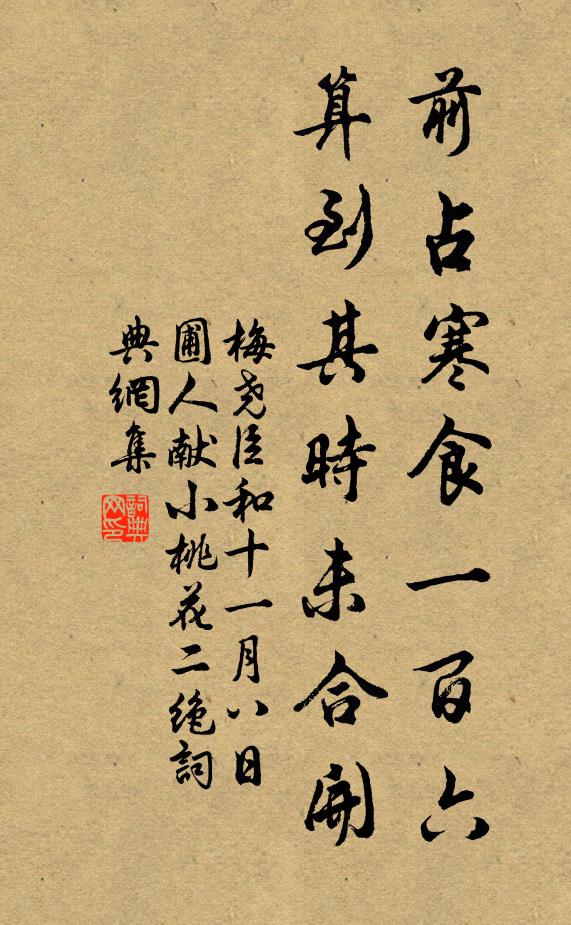 前占寒食一百六
算到其時未合開
梅尧臣和十一月八日
圃人献小桃花二绝詞
典網集
詞典
网印